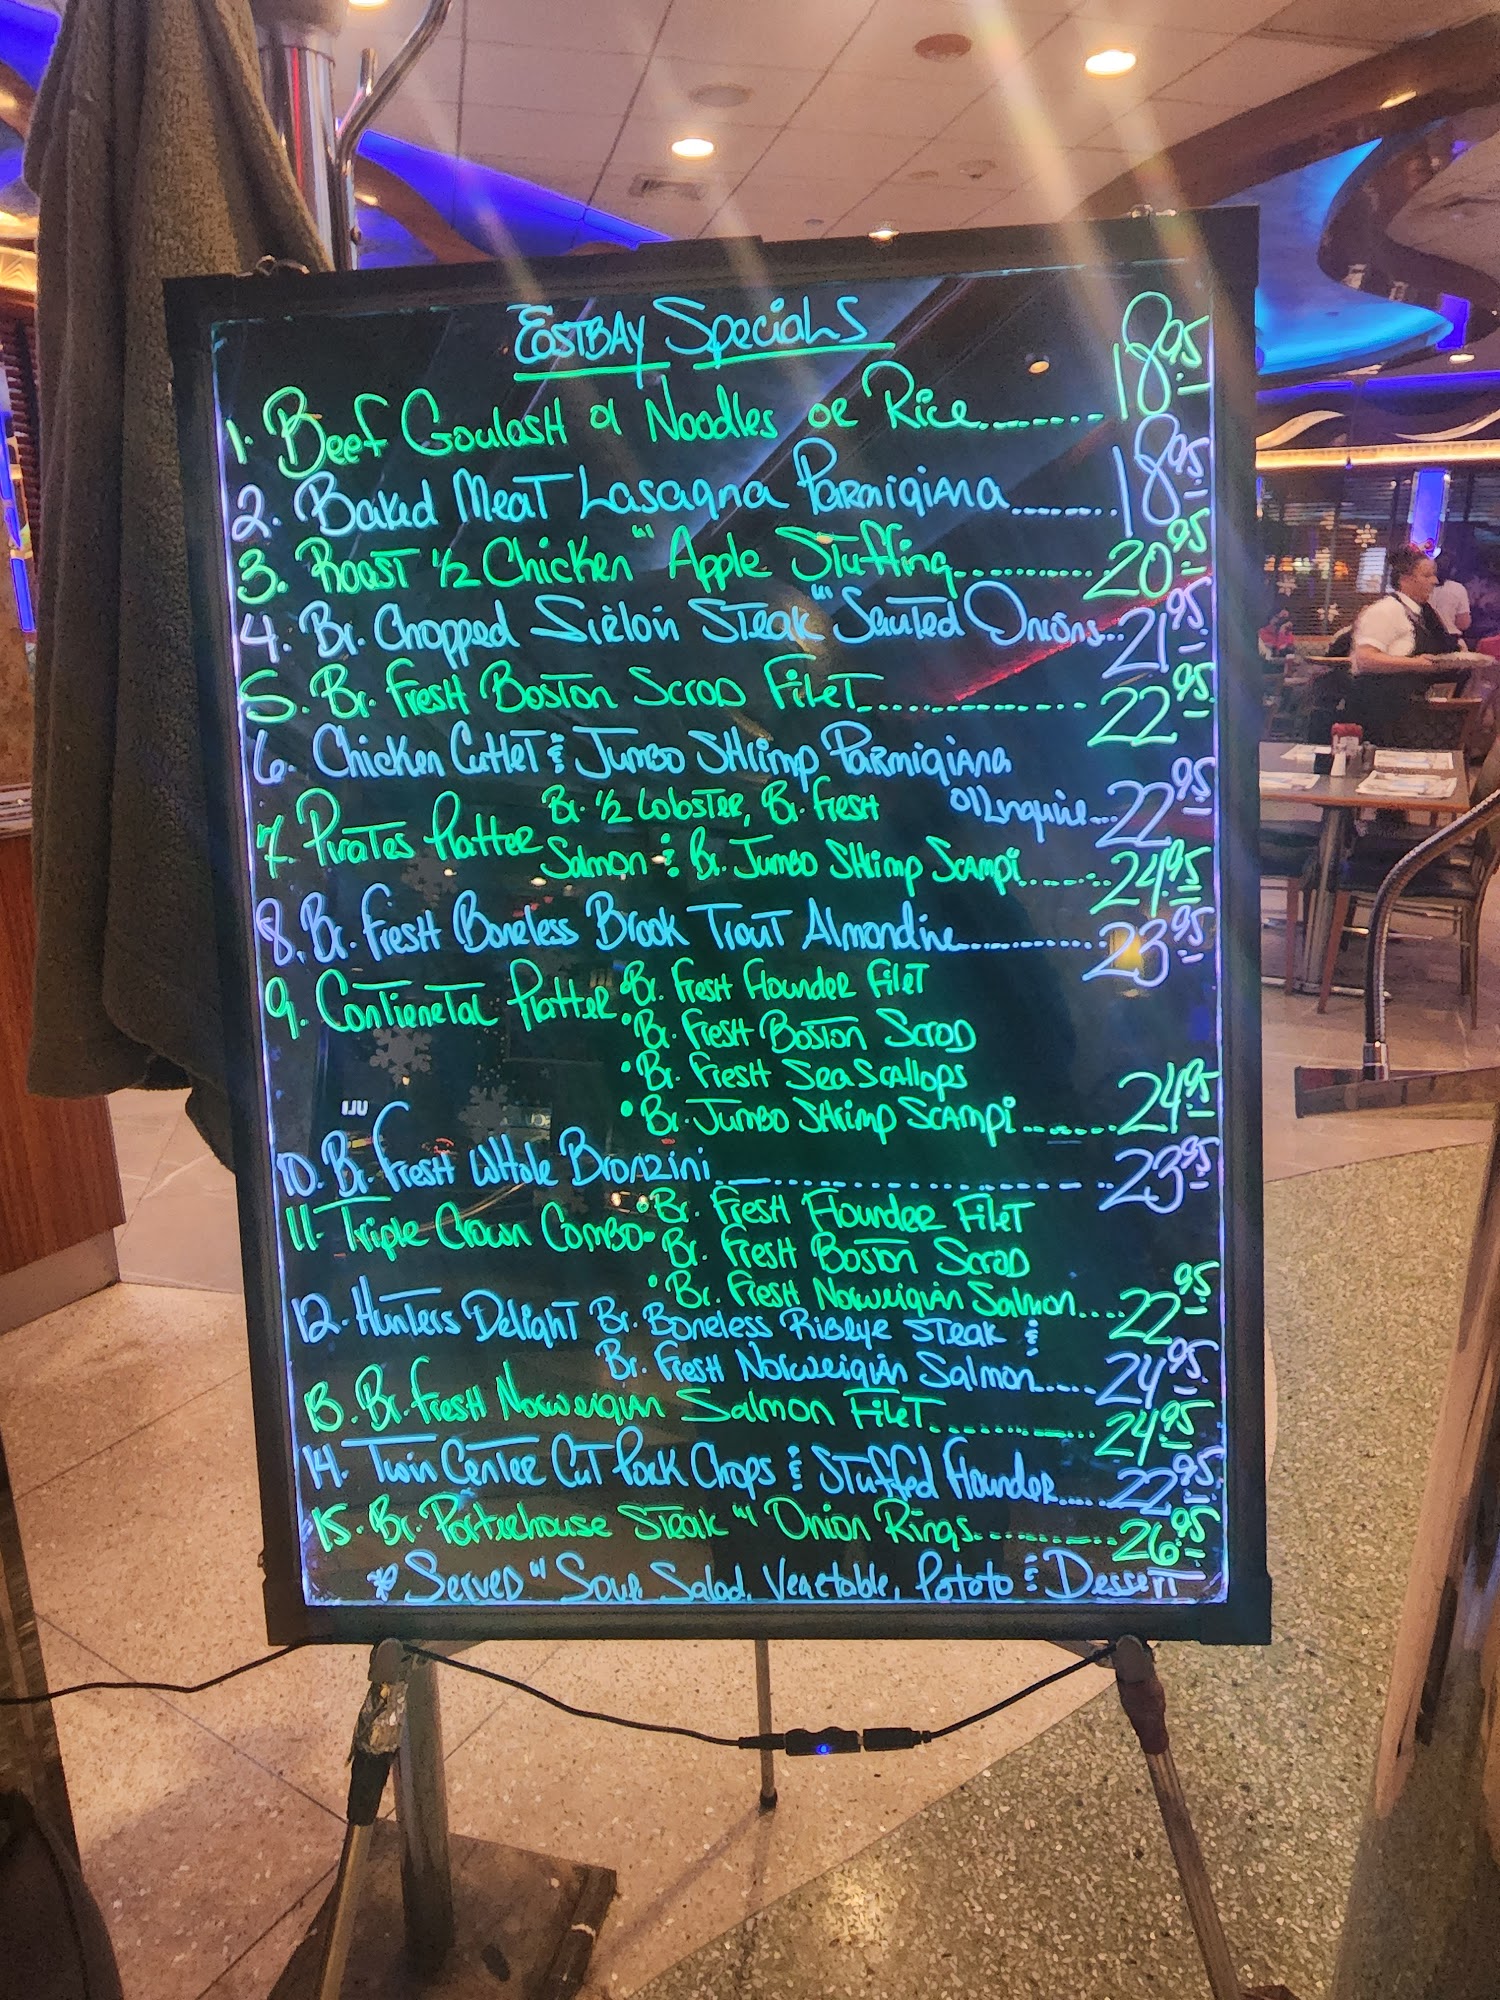 EastBay Specials
1. Beef Goulash w/ Noodles or Rice........ 18.95
2. Baked Meat Lasagna Parmigiana........ 18.95
3. Roast 1/2 Chicken "w" Apple Stuffing........ 20.95
4. Br. Chopped Sirloin Steak "w" Sauted Onions... 21.95
5. Br. Fresh Boston Scrod Filet........ 22.95
6. Chicken Cutlet & Jumbo Shrimp Parmigiana
w/ Linguine... 22.95
7. Pirates Platter Br. 1/2 Lobster, Br. Fresh
Salmon & Br. Jumbo Shrimp Scampi....... 24.95
8. Br. Fresh Boneless Brook Trout Almondine........ 23.95
9. Contienetal Platter • Br. Fresh Flounder Filet
• Br. Fresh Boston Scrod
• Br. Fresh Sea Scallops
• Br. Jumbo Shrimp Scampi........ 24.95
10. Br. Fresh Whole Bronzini........ 23.95
11. Triple Crown Combo • Br. Fresh Flounder Filet
• Br. Fresh Boston Scrod
• Br. Fresh Norweigian Salmon.... 22.95
12. Hunters Delight Br. Boneless Ribeye Steak &
Br. Fresh Norweigian Salmon..... 24.95
13. Br. Fresh Norweigian Salmon Filet........ 24.95
14. Twin Center Cut Pork Chops & Stuffed Flounder..... 22.95
15. Br. Porterhouse Steak "w" Onion Rings........ 26.95
* Served "w" Soup, Salad, Vegetable, Potato & Dessert